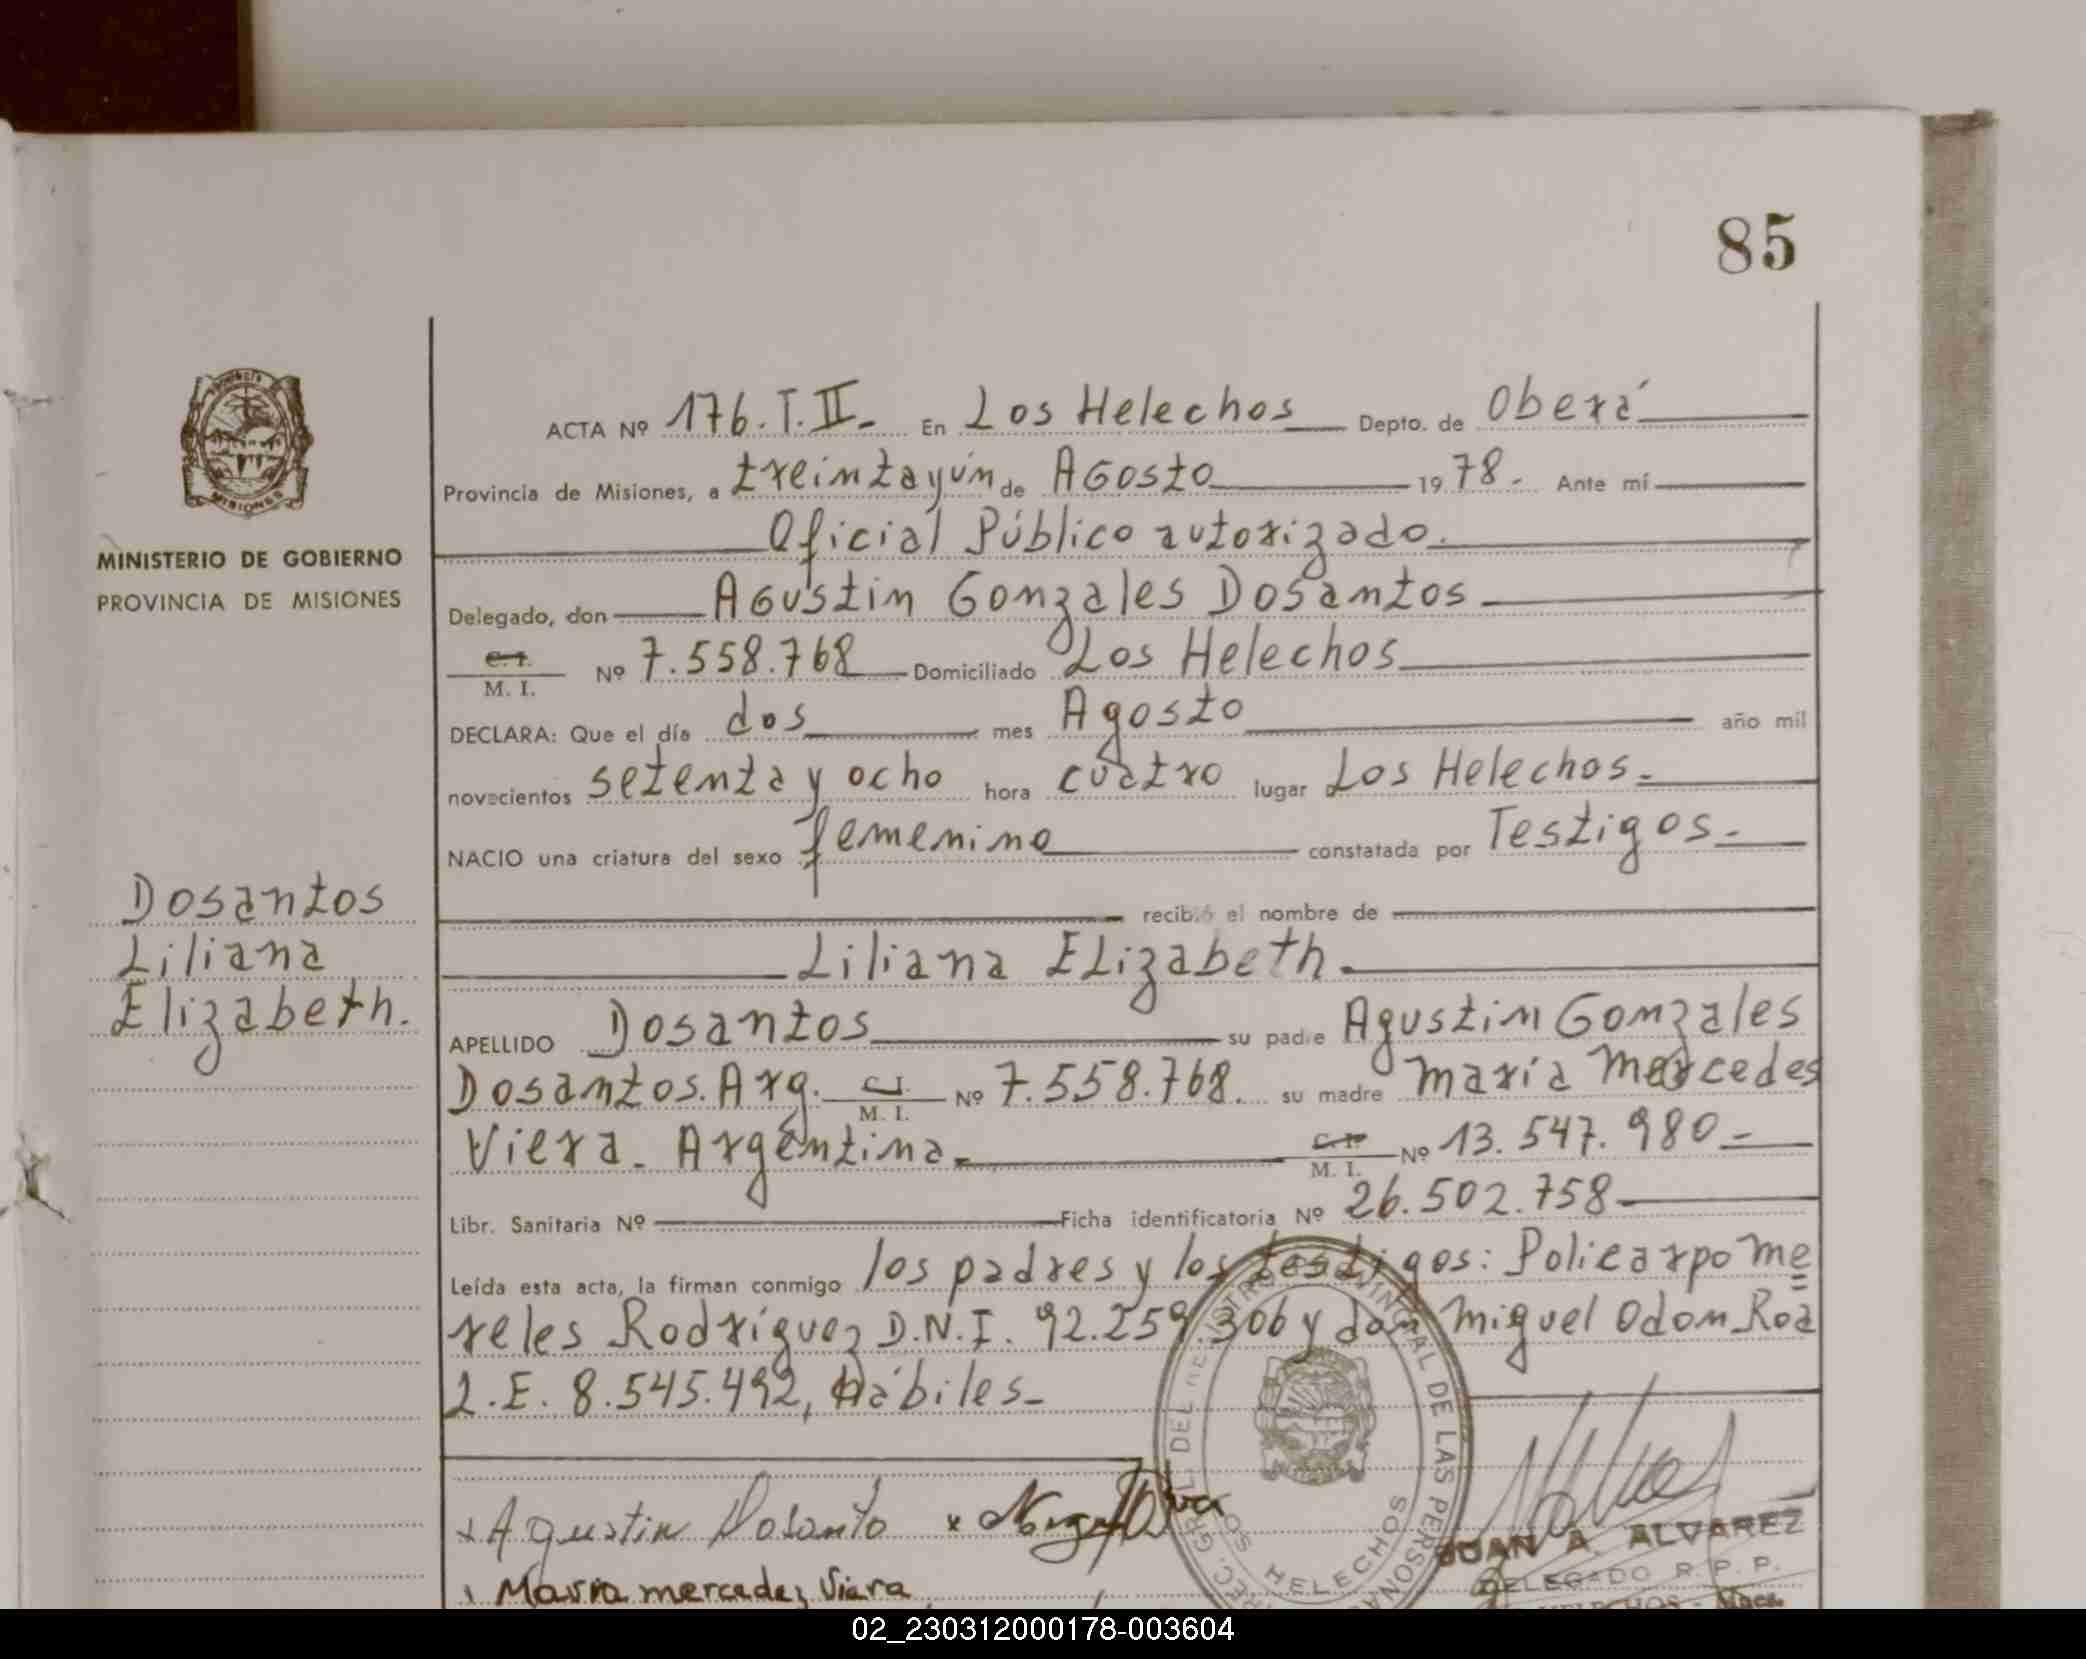 85
ACTA Nº 176.T.II- En Los Helechos Depto. de Oberá
Provincia de Misiones, a treintayún de Agosto 1978. Ante mí
Oficial Público autorizado.
MINISTERIO DE GOBIERNO
PROVINCIA DE MISIONES
Delegado, don Agustin Gonzales Dosantos
C.I. M. I. Nº 7.558.768 Domiciliado Los Helechos
DECLARA: Que el día dos mes Agosto año mil
novecientos setenta y ocho hora cuatro lugar Los Helechos.
NACIO una criatura del sexo femenino constatada por Testigos-
Dosantos
Liliana
Elizabeth.
recibió el nombre de
Liliana Elizabeth.
APELLIDO Dosantos su padre Agustin Gonzales
Dosantos. Arg. C.I. M. I. Nº 7.558.768. su madre Maria Mercedes
Viera. Argéntina. C.I. M. I. Nº 13.547.980-
Libr. Sanitaria Nº Ficha identificatoria Nº 26.502.758
Leída esta acta, la firman conmigo los padres y los testigos: Policarpo Me
reles Rodríguez D.N.I. 92.259.306 y don Miguel Odom Roa
L.E. 8.545.492, Hábiles-
x Agustin Dosanto x
Maria mercedez Viera
JUAN A. ALVAREZ
DELEGADO R. P. P.
LOS HELECHOS
02_230312000178-003604